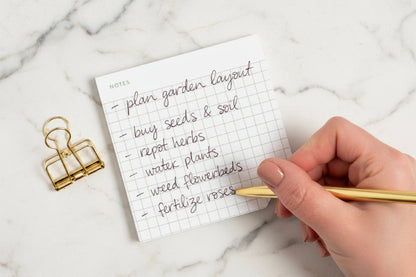 NOTES
- plan garden layout
- buy seeds & soil
- repot herbs
- water plants
- weed flowerbeds
- fertilize roses